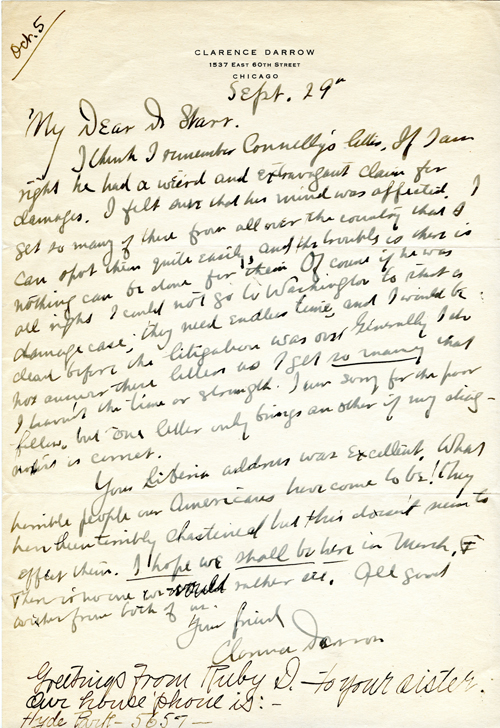 Oct. 5
CLARENCE DARROW
1537 EAST 60TH STREET
CHICAGO
Sept. 29th
My Dear Dr Starr.
I think I remember Connelly's letter. If I am
right he had a weird and extravagant claim for
damages. I felt sure that his mind was affected. I
get so many of these from all over the country that I
can spot them quite easily and the trouble is there is
nothing can be done for them. Of course if he was
all right I could not go to Washington to start a
damage case; they need endless time, and I would be
dead before the litigation was over. Generally I do
not answer these letters as I get so many that
I haven't the time or strength. I am sorry for the poor
fellow, but one letter only brings another if my diag-
nosis is correct.
Your Liberia address was excellent. What
horrible people our Americans have come to be! They
have been terribly chastened but this doesn't seem to
effect them. I hope we shall be here in March, &
there is no one we would rather see. All good
wishes from both of us.
Your friend
Clarence Darrow
Greetings from Ruby D. to your sister.
Our house 'phone is:-
Hyde Park - 5657 -